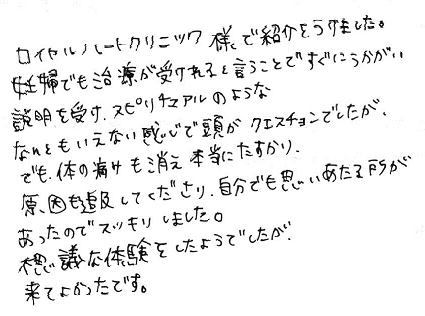 ロイヤルハートクリニック様で紹介をうけました。
妊婦でも治療が受けれると言うことですぐにうかがい
説明を受け、スピリチュアルのような
なんともいえない感じで頭がクエスチョンでしたが、
でも、体の痛みも消え本当にたすかり、
原因も追及してくださり、自分でも思いあたる所が
あったのでスッキリしました。
不思議な体験をしたようでしたが、
来てよかったです。